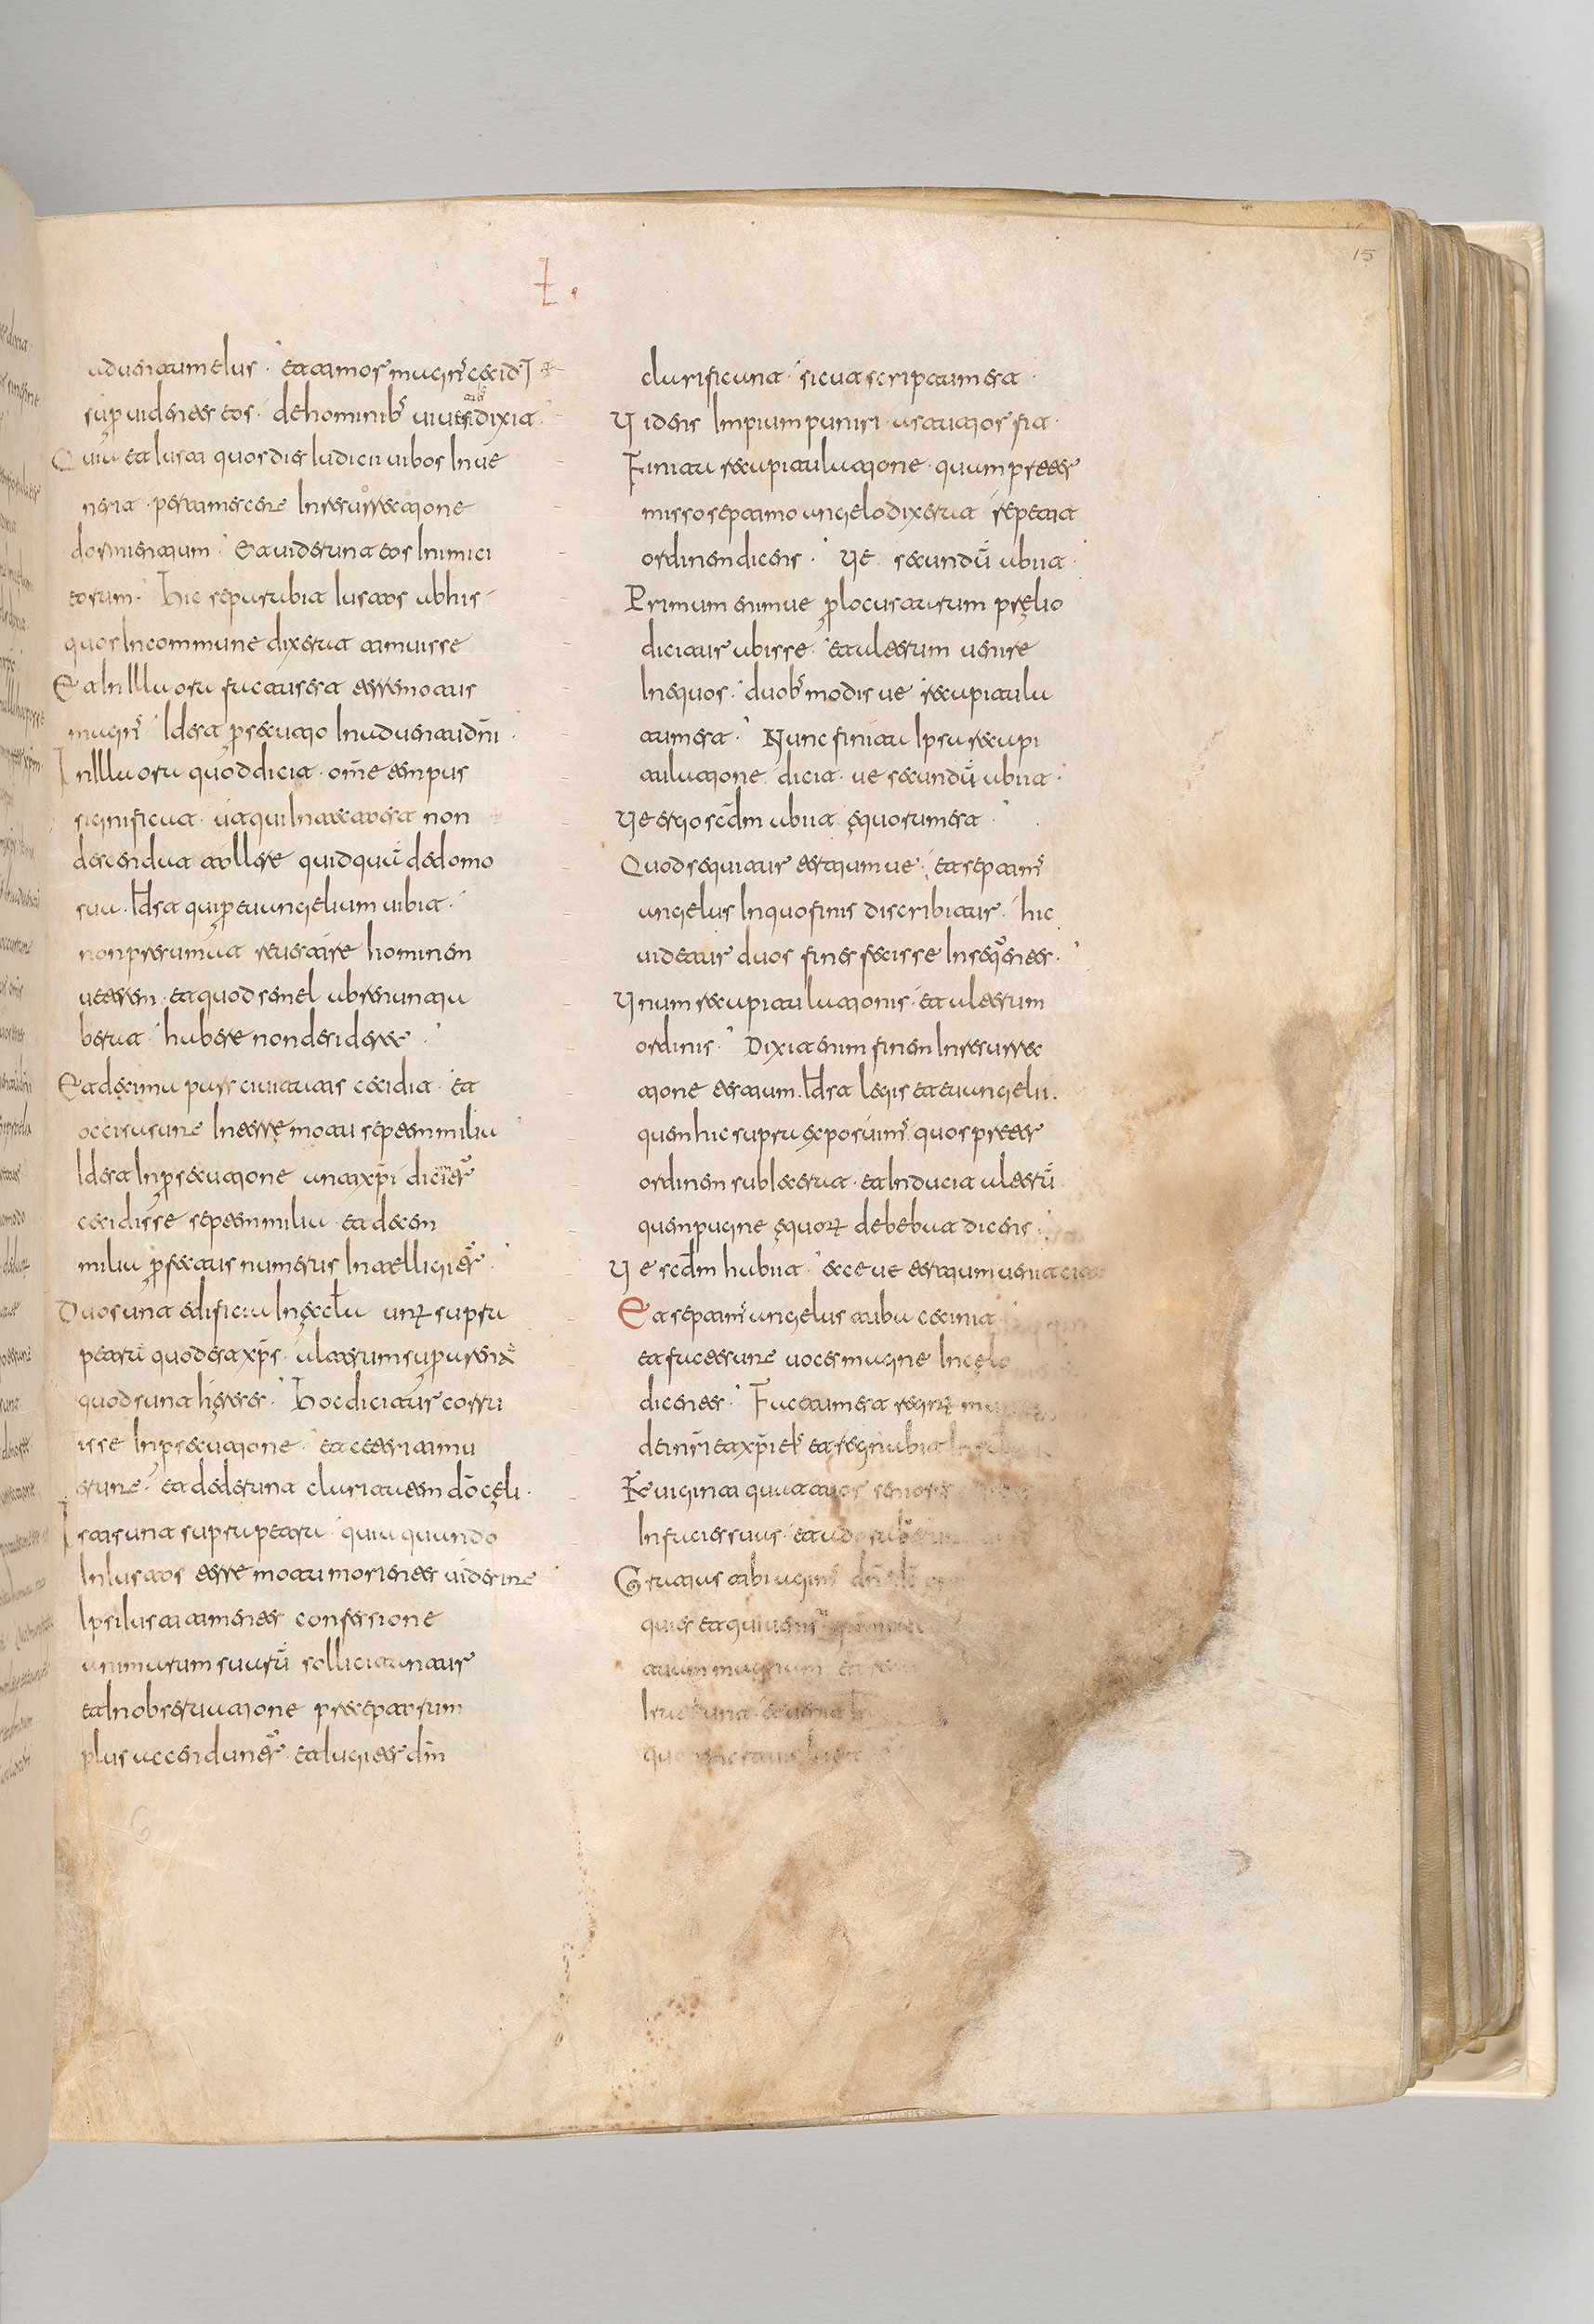 Ł.
15
aduentum eius · et timor magns̄ cecid̄
sup̱ uidentes eos · de hominibs̄ uiuentibs̄ dixit
Quia et iusti quos dies iudicii uibos inue
nerit · pertimescere in resurrectione
dormientium · Et uiderunt eos inimici
eorum · hic separabit iustos ab his
quos in commune dixerat timuisse
Et in illa ora factus est terremotus
magns̄ id est p̱secutio in aduentu dn̄i ·
In illa ora quod dicit · om̄e tempus
significat · ut qui in tecto est non
descendat tollere quidquā de domo
sua · id est qui p̱ euangelium uibit ·
non presumat reuertere hominem
ueterem · et quod semel abrenuntia
berat habere non desideret ·
Et decima pars ciuitatis cecidit · et
occisi sunt in terremotu septem milia
Id est in p̱secutione antixp̄i dicunt̄r
cecidisse septem milia · et decem
milia p̱fectus numerus intelligit̄r ·
Duo sunt edificia in ęccl̄a unū supra
petrā quod est xp̄s · alterum sup̱ arenā
quod sunt hęreses · Hoc dicitur corru
isse in p̱secutione · et ceteri timu
erunt · et dederunt claritatem dō cęli ·
Isti sunt supra petra · quia quando
in iustos terremotu morientes uiderint
ipsi iusti timentes confessione
animarum suarū sollicitantur
et in obseruatione preceptorum
plus accendunt̄r · et lugentes dn̄m
clarificant · sicut scriptum est ·
Uidens impium puniri · astutior fit ·
Finita recapitulatione · quum prees
misso septimo angelo dixerat repetit
ordinem dicens · Ue secundū abiit ·
Primum enim ue p̱ locustarum pręlio
dicitur abisse · et alterum uenire
in equos · duobs̄ modis ue recapitula
tum est · Nunc finita ipsa recapi
tulatione dicit · ue secundū abiit ·
Ue ergo scd̄m abiit ęquorum est ·
Quod sequitur tertium ue · et septims̄
angelus in quo finis discribitur · hic
uidetur duos fines fecisse in seqn̄tes ·
Unum recapitulationis · et alterum
ordinis · Dixit enim finem in resurrec
tione testium · Id est legis et euangelii ·
quem hic supra exposuims̄ quos preter
ordinem sublexerat · et inducit alterū
quem pugne ęquorū debebat dicens ·
Ue scd̄m habiit · ecce ue tertium uenit cito
Et septims̄ angelus tuba cecinit
et facte sunt uoces magne in cęlo
dicentes · Factum est regnū
dei nr̄i et xp̄i eis̄ et regnabit
Et uiginti quattuor seniores
in facies suas · et
Gratias tibi agims̄ dn̄e ds̄